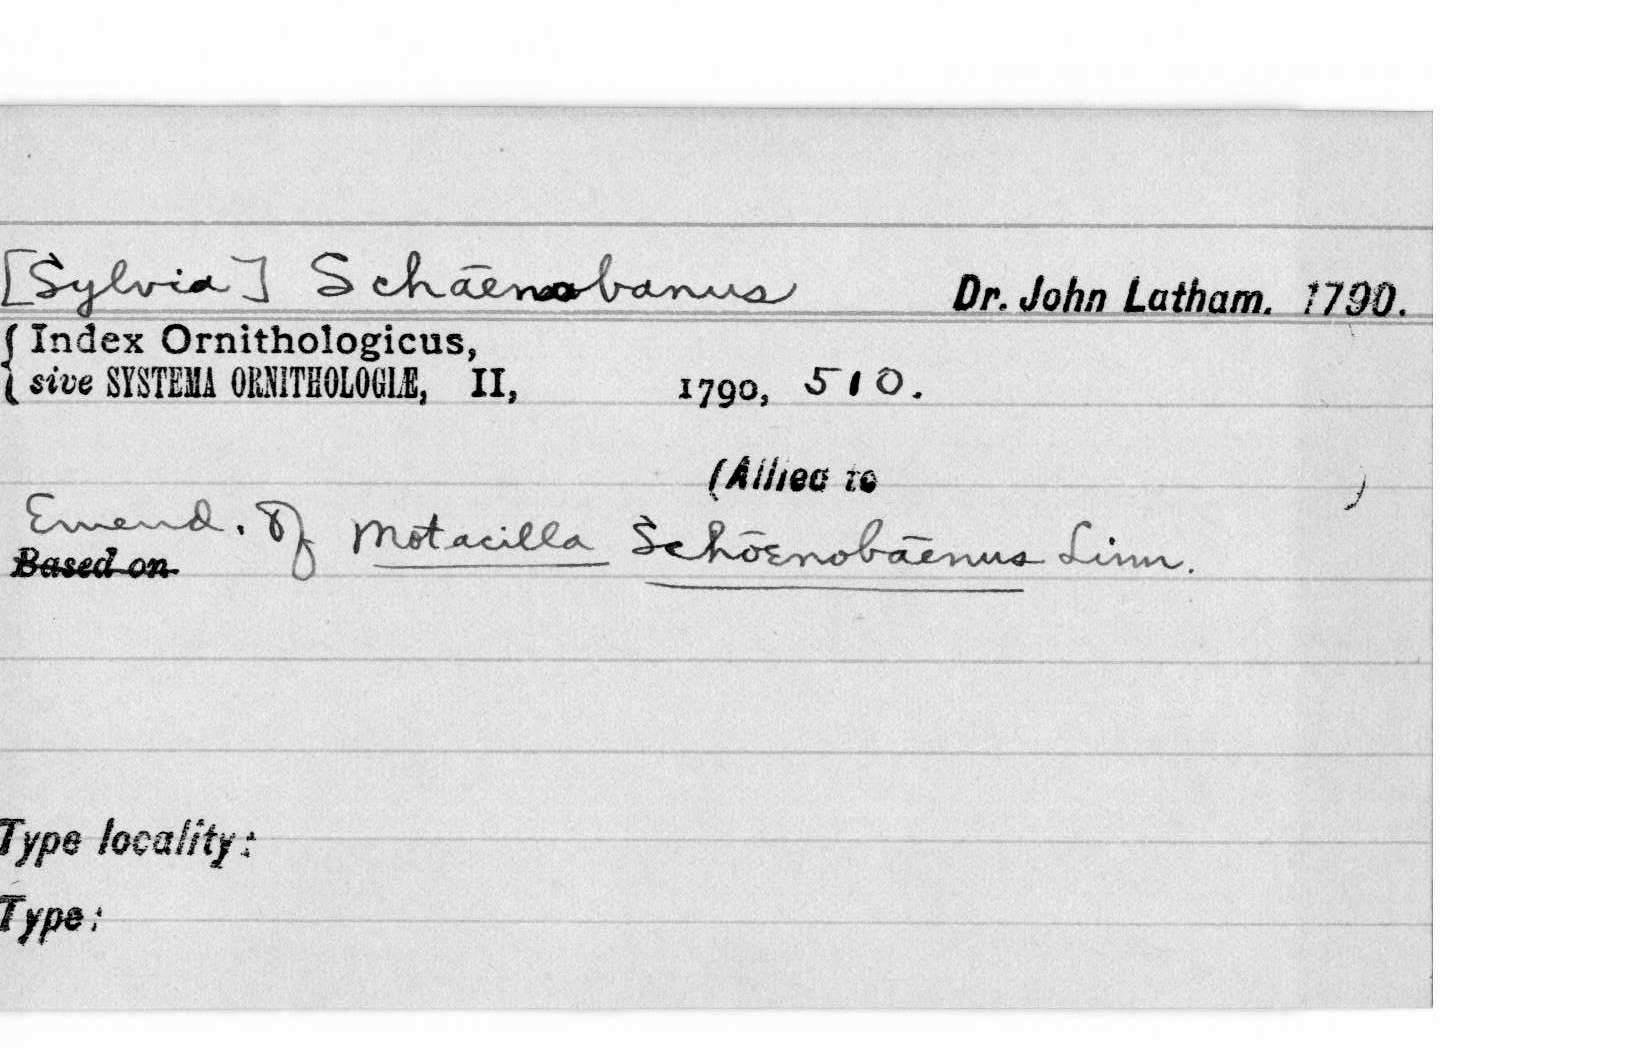 [Sylvia] Schāenobanus Dr. John Latham. 1790.
{ Index Ornithologicus,
sive SYSTEMA ORNITHOLOGIÆ, II, 1790, 510.
(Allied to )
Emend. of Motacilla Schōenobāenus Linn.
Based on
Type locality:
Type: